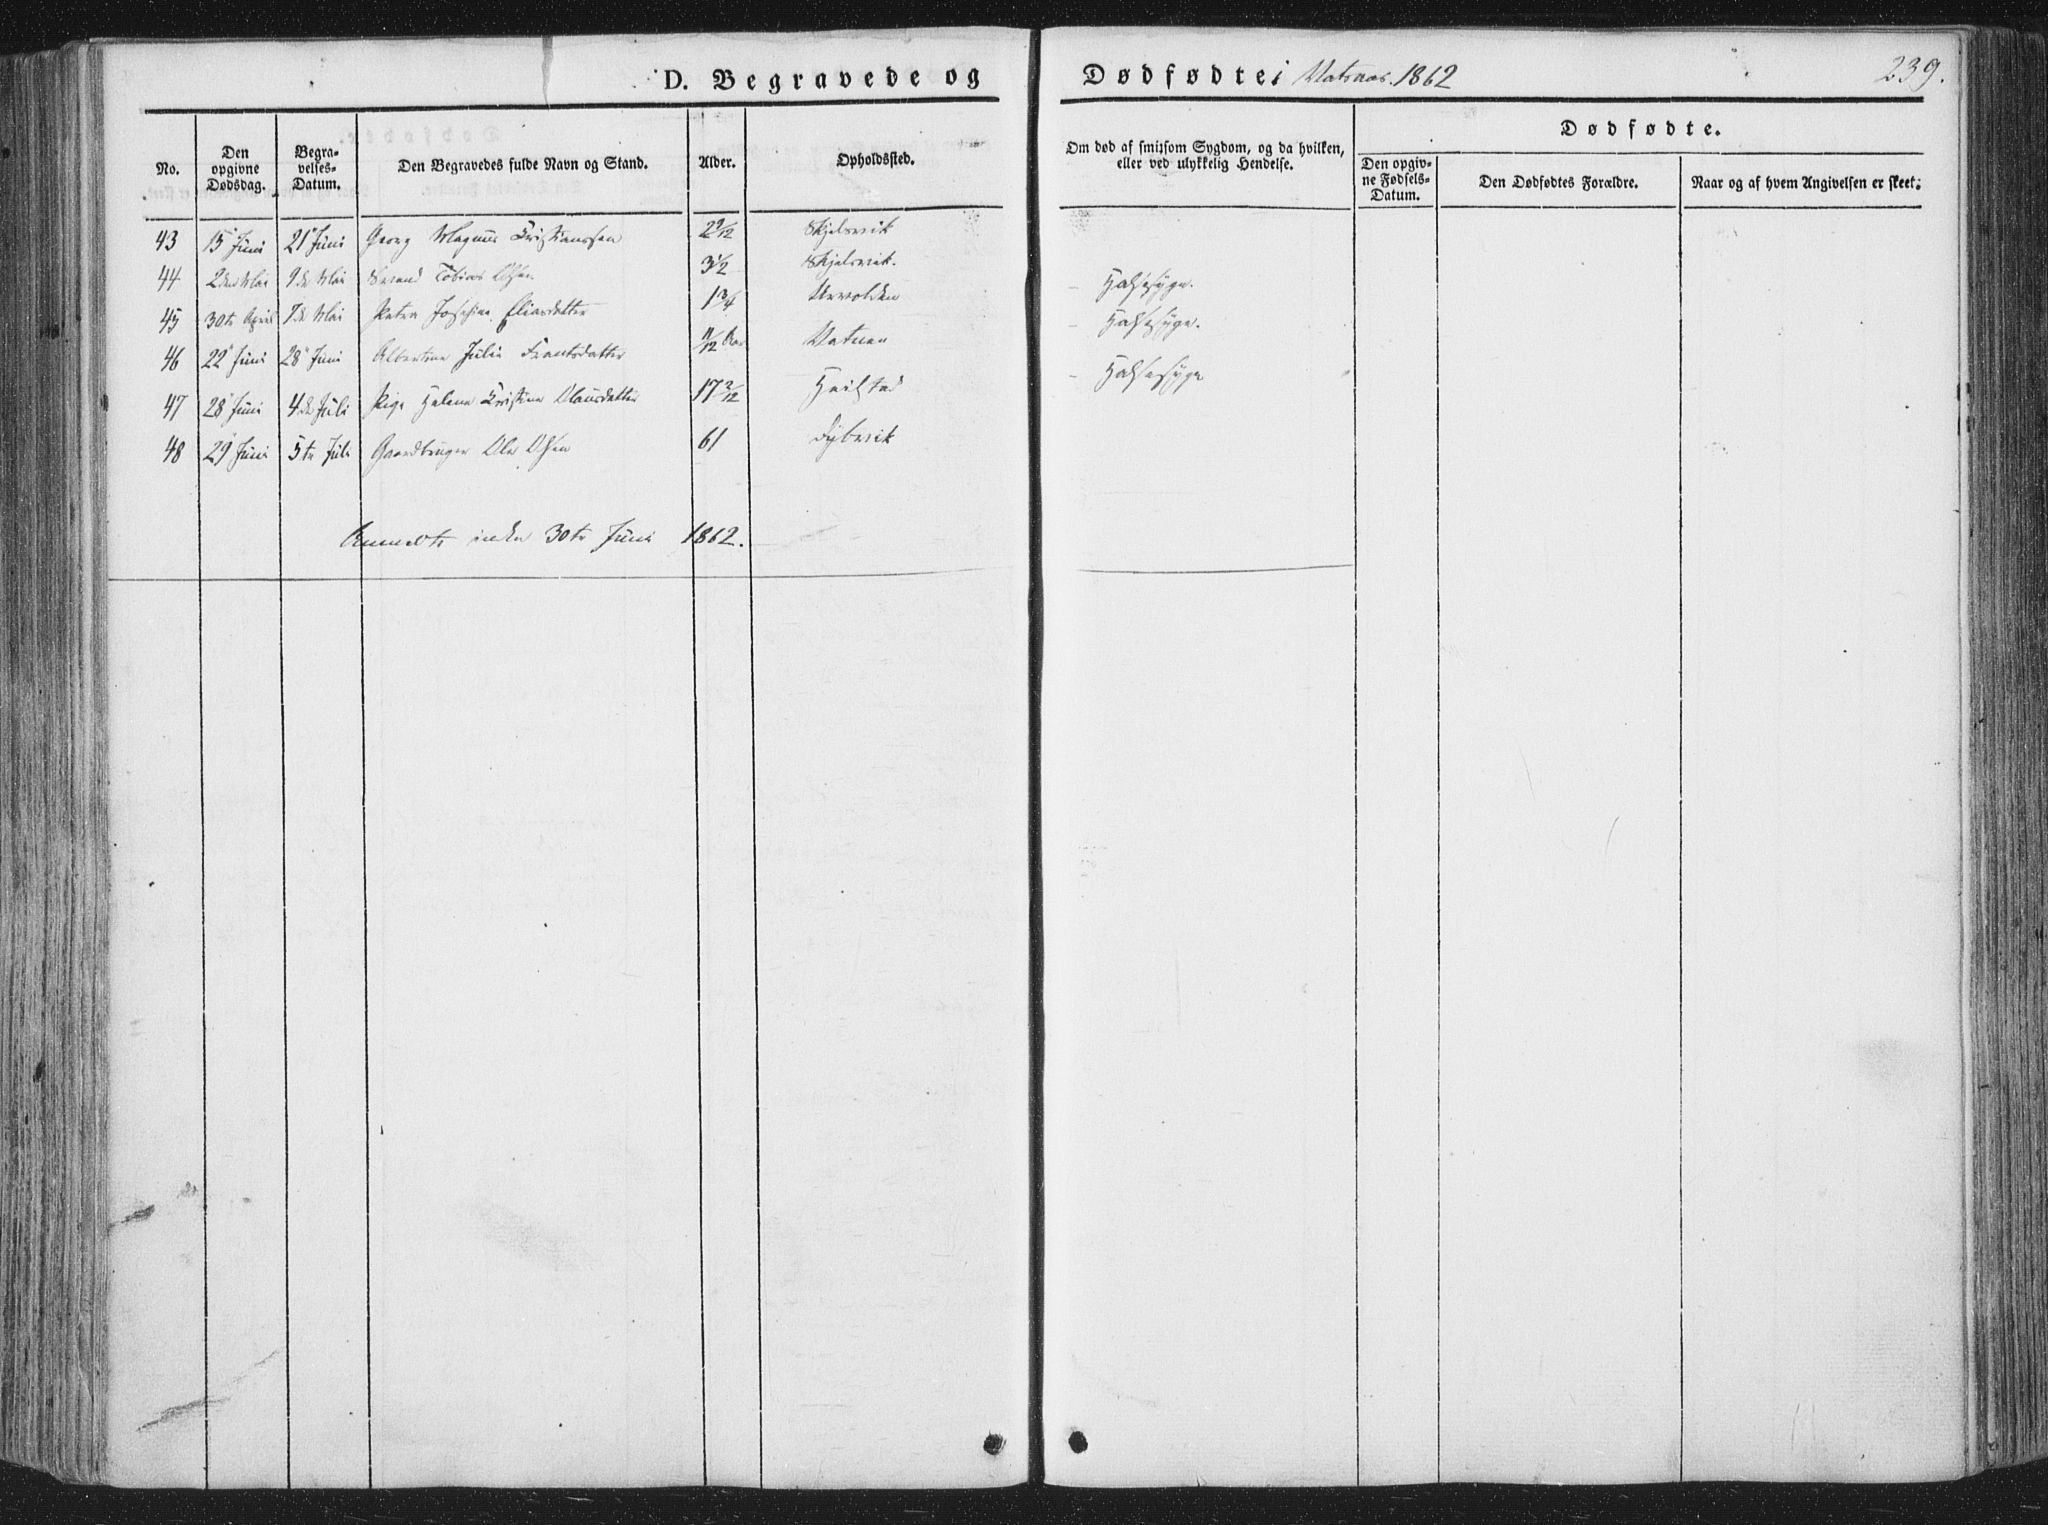 D. Begravede og Dødfødte i Vatnaas. 1862 239.
No. Den opgivne Dødsdag. Begravelses-Datum. Den Begravedes fulde Navn og Stand. Alder. Opholdssted. Om død af smitsom Sygdom, og da hvilken, eller ved ulykkelig Hendelse. Dødfødte. Den opgivne Fødsels-Datum. Den Dødfødtes Forældre. Naar og af hvem Angivelsen er skeet.
43 15 Juni 21 Juni Georg Magnus Cristianssen 2 9/12 Skjelsvik
44 2den Mai 9de Mai Tobias Olsen 3 1/2 Skjelsvik. - Halssyge.
45 30te April 7de Mai Petra Josefine Eliasdatter 1 3/4 Urvolden - Halssyge.
46 22 Juni 28 Juni Albertine Julie Frantsdatter 11/12 Aar Vatnan - Halssyge
47 28 Juni 4de Juli Pige Helene Cristine Olausdatter 17 2/12 Heilstad
48 29 Juni 5te Juli Gaardbruger Ole Olsen 61 Dybvik
Anmeldte inden 30te Juni 1862.